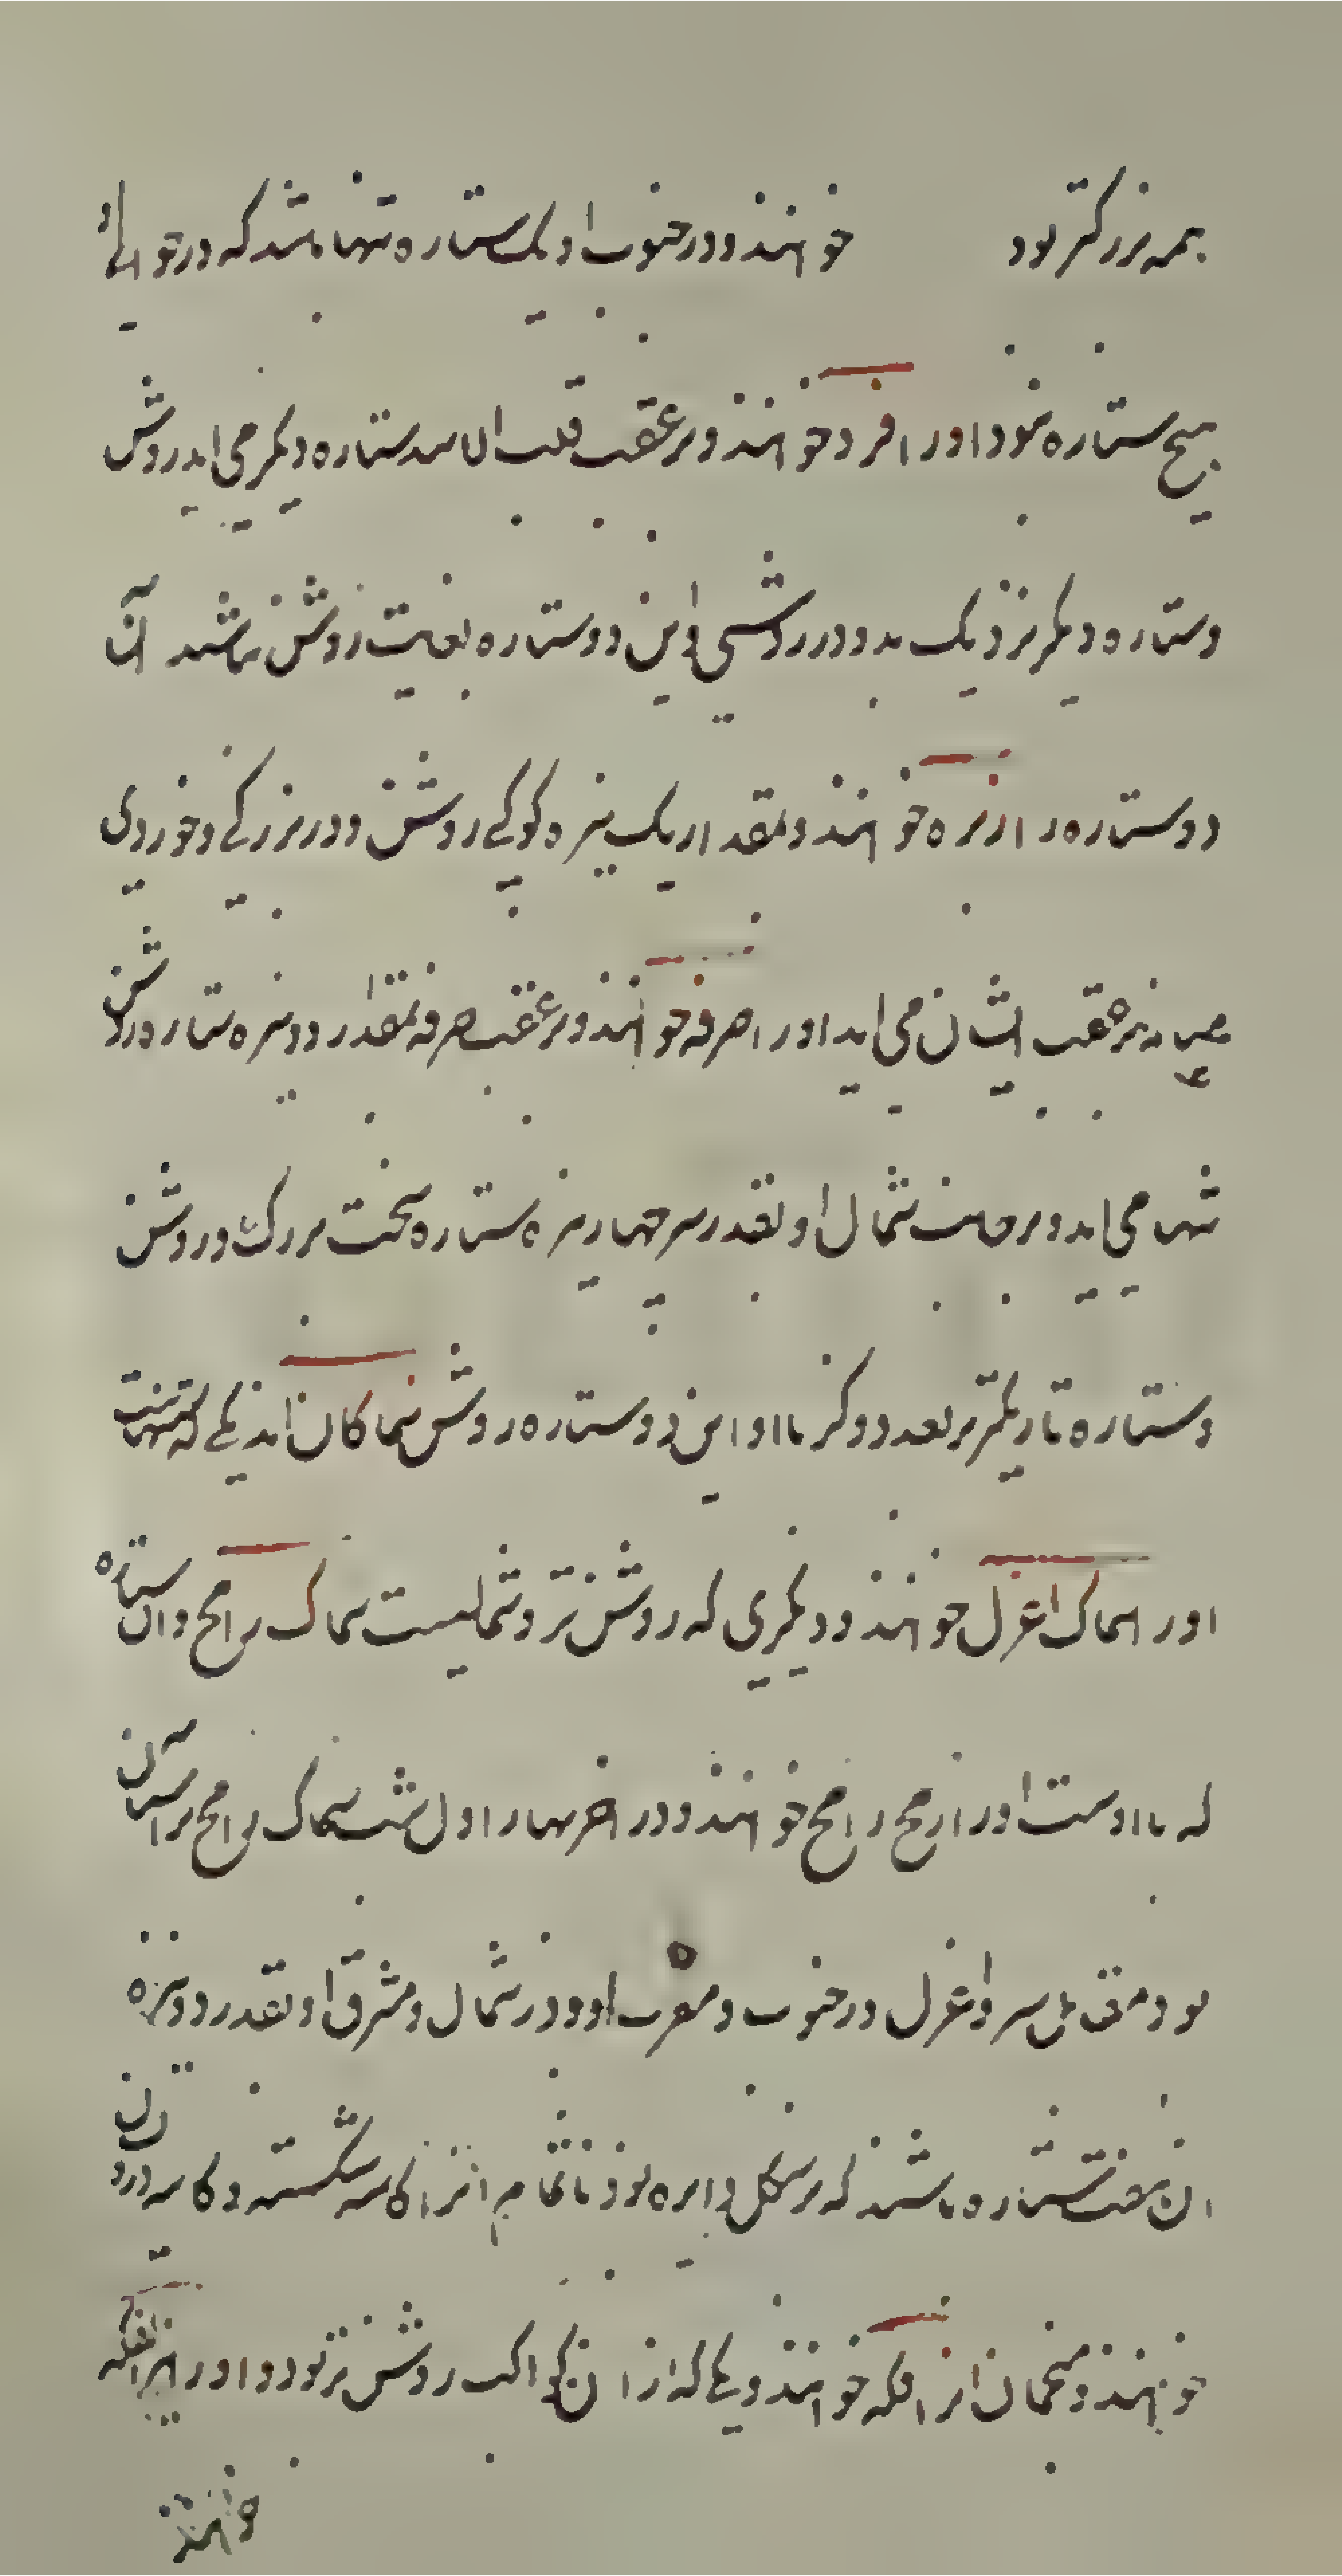 همه بزرگتر بود خوانند و در جنوب او یک ستاره تنها باشد که در حوالی او
هیچ ستاره نبود او را فرد خوانند و بر عقب قلب الاسد ستاره دیگر می اید روشن
و ستاره دیگر نزدیک بدو در روشنی و این دو ستاره بغایت روشن باشند آن
دو ستاره را زبره خوانند و بمقدار یک نیزه کوکبی روشن و در بزرگی و خوردی
میانه بر عقب ایشان می اید او را صرفه خوانند و بر عقب صرفه بمقدار دو نیزه ستاره روشن
تنها می اید و بر جانب شمال او بقدر سه چهار نیزه ستاره سخت بزرک و روشن
و ستاره تاریکتر ببعد دو گز با او این دو ستاره روشن سماکان اند یکی که تنهاست
او را سماک اعزل خوانند و دیگری که روشن تر و شمالیست سماک رامح و ان ستاره
که با اوست او را رمح رامح خوانند و در اخر بهار اول شب سماک رامح بر آسمان
بود مقابل سر و اعزل در جنوب و مغرب او و در شمال و مشرق او بقدر دو نیزه
ان هفت ستاره باشند که بر شکل دایره بود ناتمام انرا کاسه شکسته و کاسه درویشان
خوانند و منجمان انرا فکه خوانند و یکی که از ان کواکب روشن تر بود او را نیر الفکه
خوانند